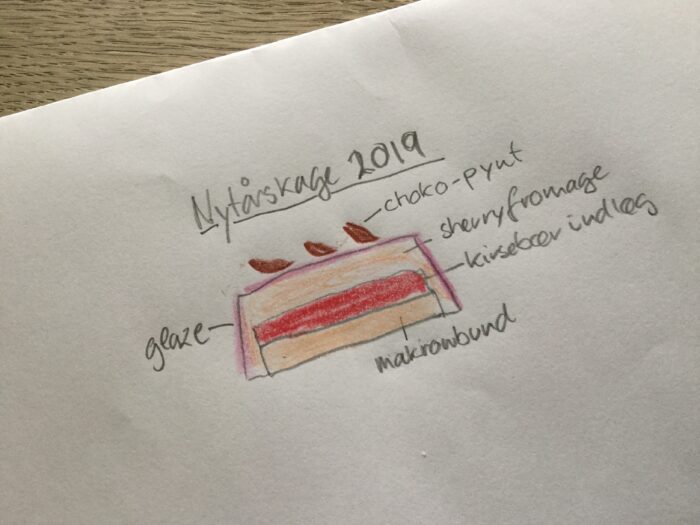 Nytårskage 2019
choko-pynt
sherryfromage
kirsebær indlæg
glaze
makronbund